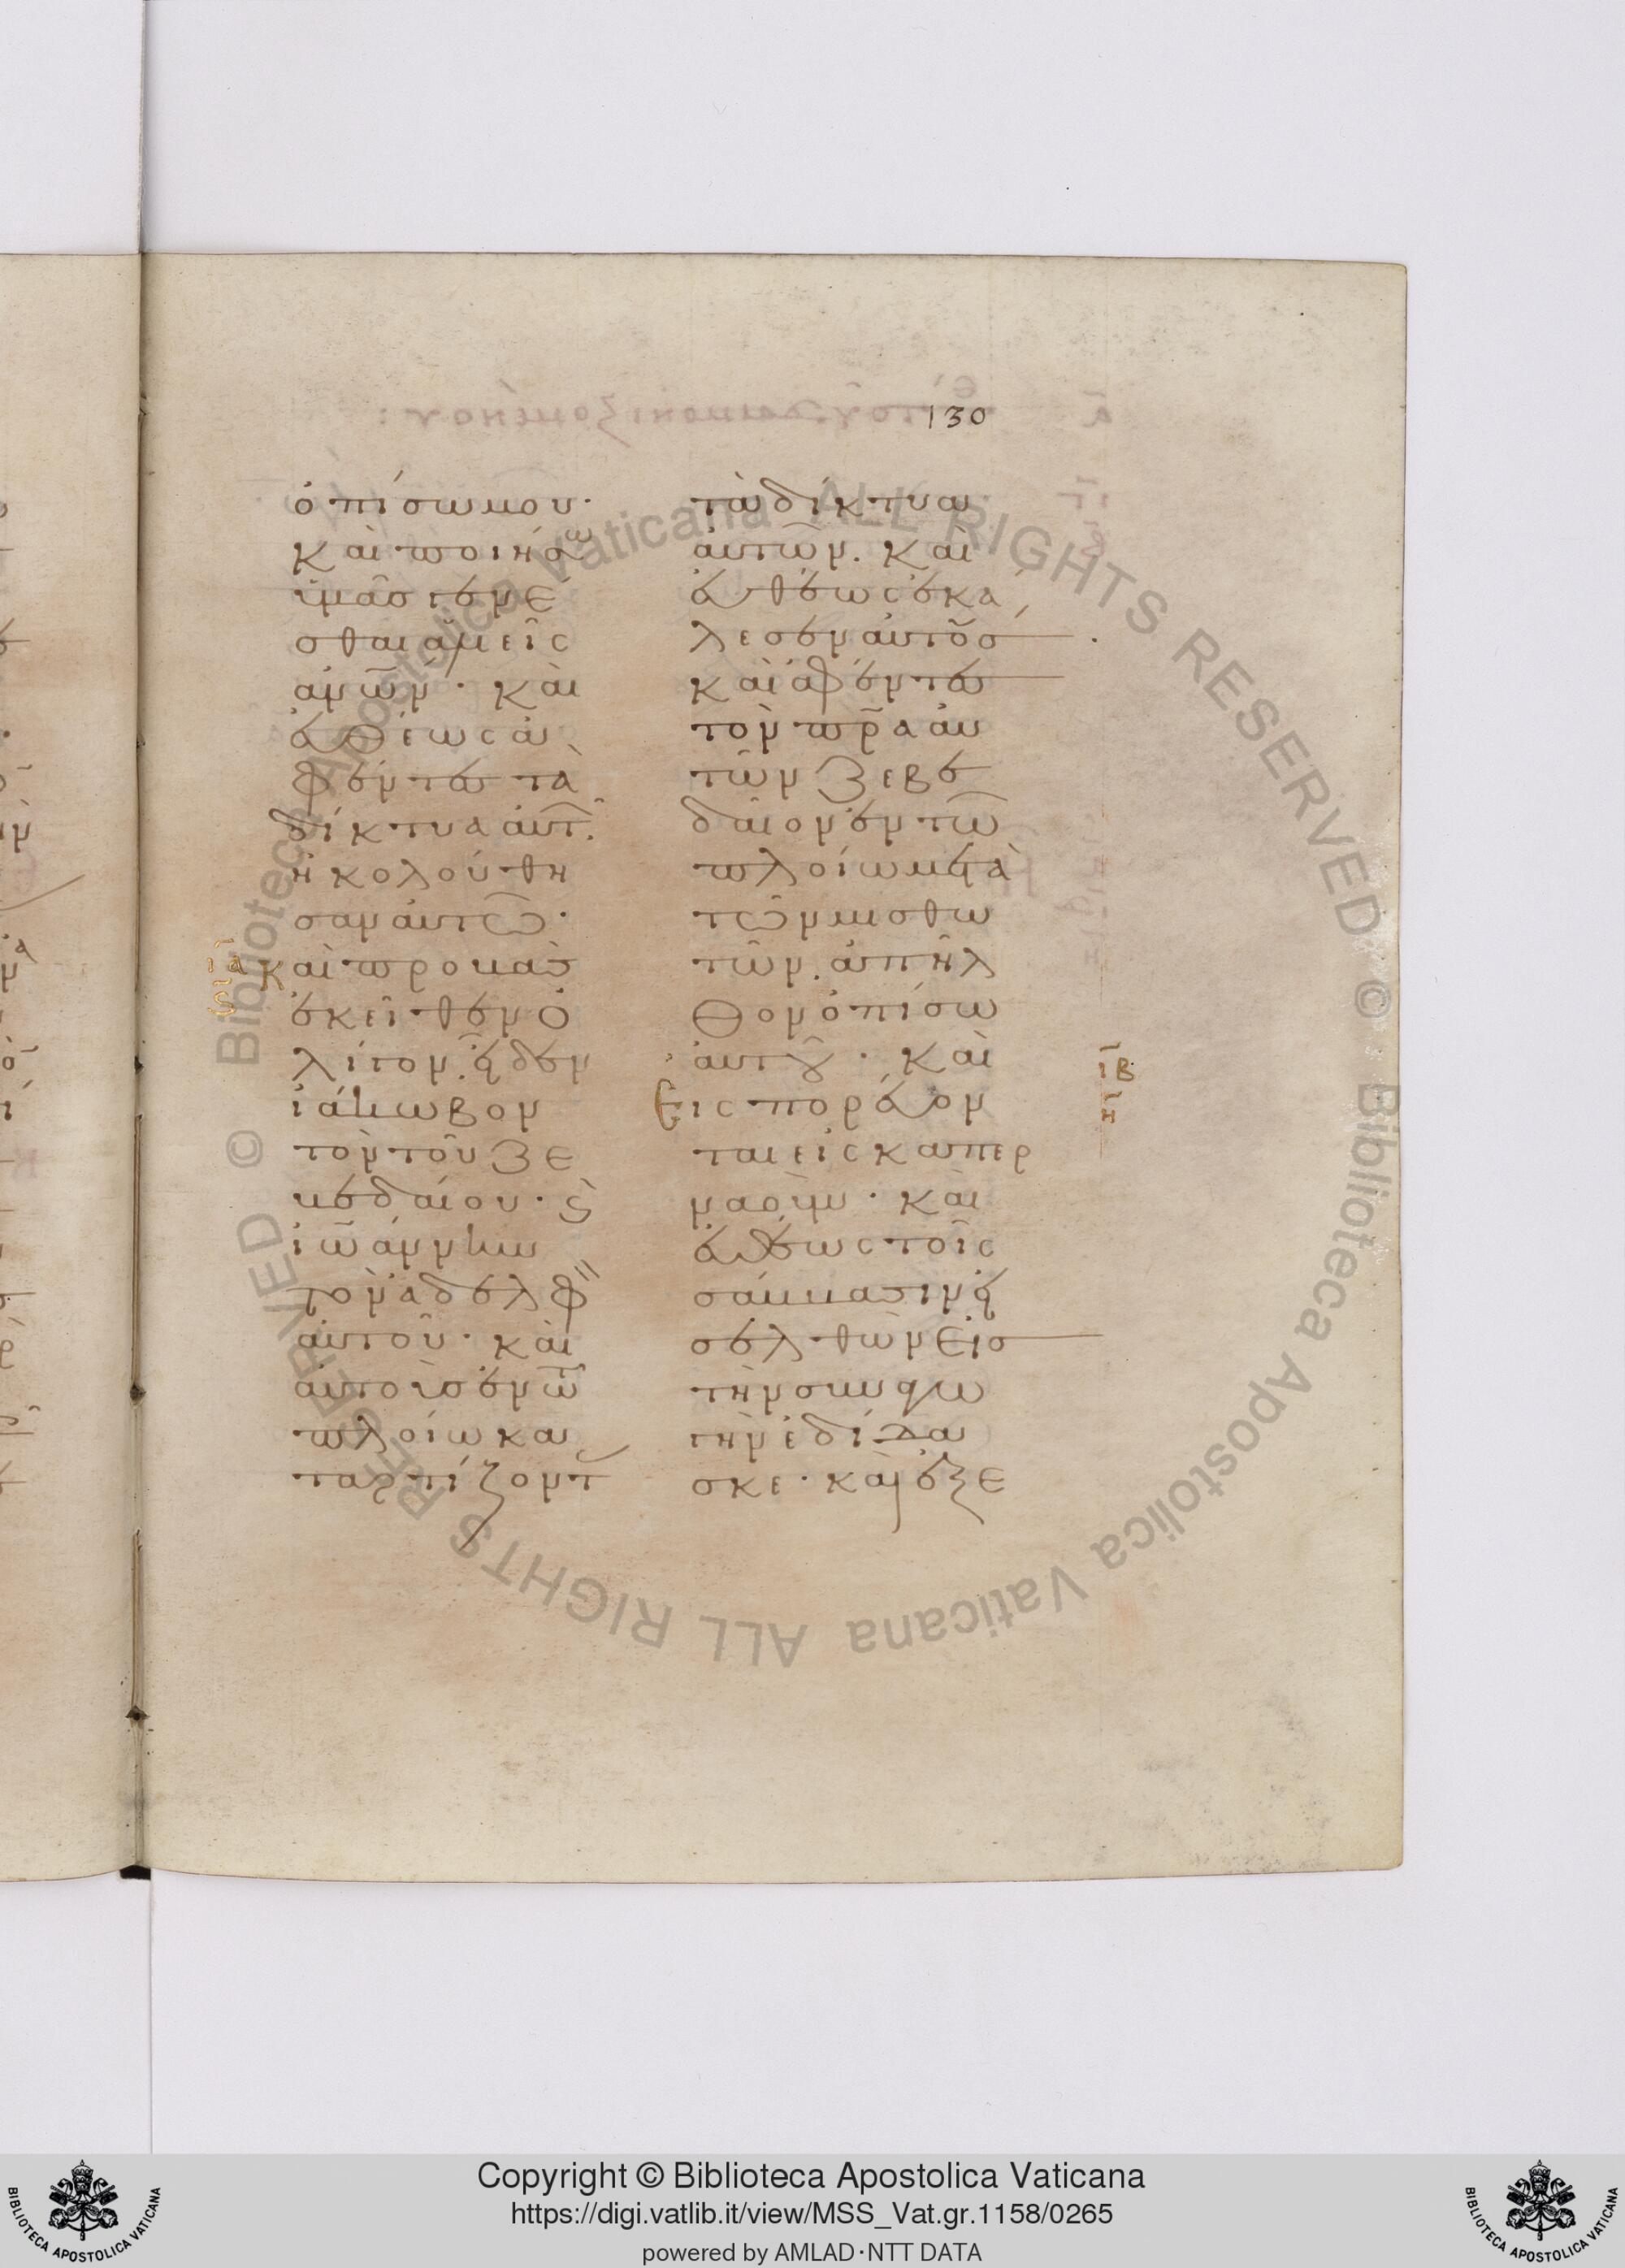 130
ὀπίσω μου·
καὶ ποιήσω
ὑμᾶσ γενέ
σθαι ἁλιεῖς
ἀνων· καὶ
εὐθέως ἀ
φέντες τὰ
δίκτυα αὐτ
ἠκολούθη
σαν αὐτῶ·
ια
ϛ
καὶ προβὰσ
ἐκεῖθεν ὀ
λίγον. εἶδεν
ἰάκωβον
τὸν τοῦ ζε
βεδαίου· ϗ
ἰωάννην
τὸν ἀδελφ
αὐτοῦ· καὶ
αὐτοὺσ ἐν τῶ
πλοίω κα
ταρτίζοντ
τὰ δίκτυα
αὐτῶν. καὶ
εὐθέως ἐκά
λεσεν αὐτοὺσ
καὶ ἀφέντες
τὸν πρα αὐ
τῶν ζεβε
δαῖον ἐν τῶ
πλοίω μετὰ
τῶν μισθω
τῶν. ἀπῆλ
θον ὀπίσω
αὐτοῦ· καὶ
ιβ
η
Εἰσπορεύον
ται εἰς καπερ
ναούμ· καὶ
εὐθέως τοῖς
σάββασιν εἰ
σελθὼν εἰσ
τὴν συναγω
γὴν ἐδίδα
σκε· καὶ ἐξε
Copyright © Biblioteca Apostolica Vaticana
https://digi.vatlib.it/view/MSS_Vat.gr.1158/0265
powered by AMLAD·NTT DATA
BIBLIOTECA APOSTOLICA VATICANA
BIBLIOTECA APOSTOLICA VATICANA
© Biblioteca Apostolica Vaticana ALL RIGHTS RESERVED © Biblioteca Apostolica Vaticana ALL RIGHTS RESERVED